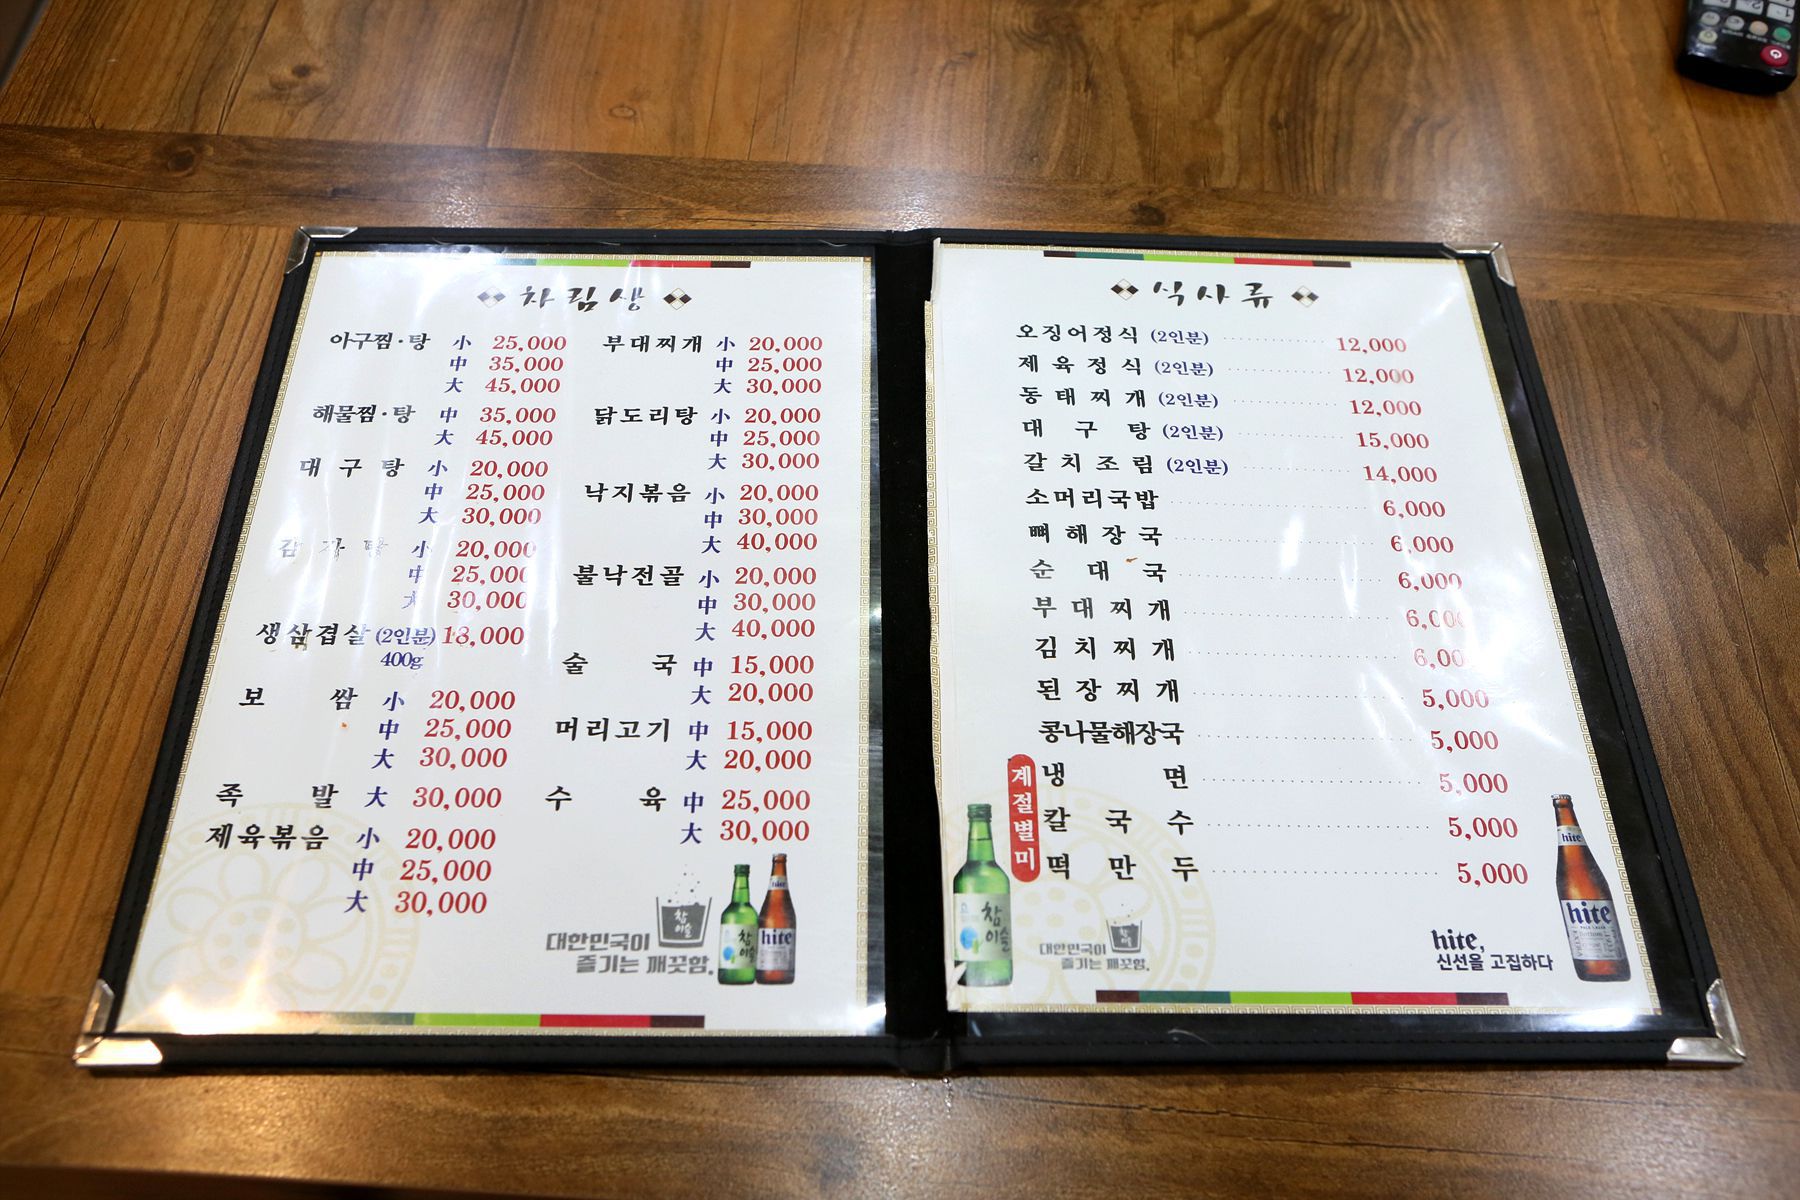 차림상
아구찜·탕 小 25,000
中 35,000
大 45,000
해물찜·탕 中 35,000
大 45,000
대구탕 小 20,000
中 25,000
大 30,000
감자탕 小 20,000
中 25,000
大 30,000
생삼겹살 (2인분) 18,000
400g
보쌈 小 20,000
中 25,000
大 30,000
족발 大 30,000
제육볶음 小 20,000
中 25,000
大 30,000
부대찌개 小 20,000
中 25,000
大 30,000
닭도리탕 小 20,000
中 25,000
大 30,000
낙지볶음 小 20,000
中 30,000
大 40,000
불낙전골 小 20,000
中 30,000
大 40,000
술국 中 15,000
大 20,000
머리고기 中 15,000
大 20,000
수육 中 25,000
大 30,000
참이슬
대한민국이
즐기는 깨끗함.
참이슬
hite
식사류
오징어정식 (2인분) 12,000
제육정식 (2인분) 12,000
동태찌개 (2인분) 12,000
대구탕 (2인분) 15,000
갈치조림 (2인분) 14,000
소머리국밥 6,000
뼈해장국 6,000
순대국 6,000
부대찌개 6,000
김치찌개 6,000
된장찌개 5,000
콩나물해장국 5,000
계절별미
냉면 5,000
칼국수 5,000
떡만두 5,000
참이슬
참이슬
대한민국이
즐기는 깨끗함.
hite,
신선을 고집하다
hite
hite